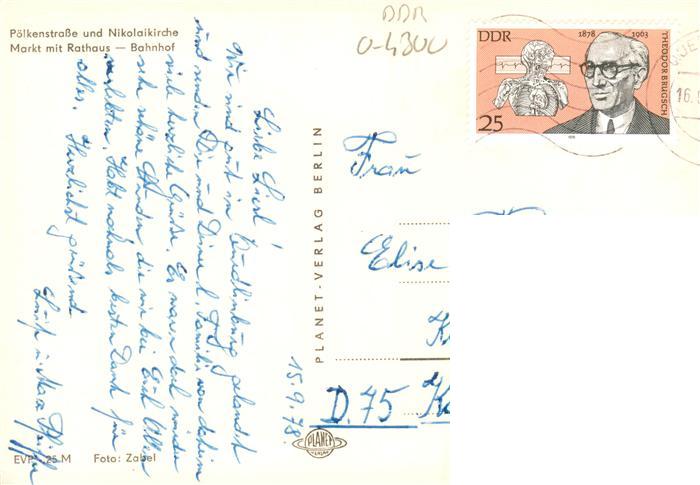 Pölkenstraße und Nikolaikirche
Markt mit Rathaus — Bahnhof
DDR
0-4300
DDR
1878
1963
THEODOR BRUGSCH
25
1978
16.
Liebe Liesl!
Wir sind gut in Quedlinburg gelandet
und senden Dir und Deiner l. Familie von daheim
viele herzliche Grüße. Es waren doch wieder
sehr schöne Stunden die wir bei Euch
verlebten. Habt nochmals besten Dank für
alles. Herzlichst grüßend
15.9.78
PLANET-VERLAG BERLIN
PLANET
VERLAG
Frau
Elise
D.75
EVP -,25 M
Foto: Zabel